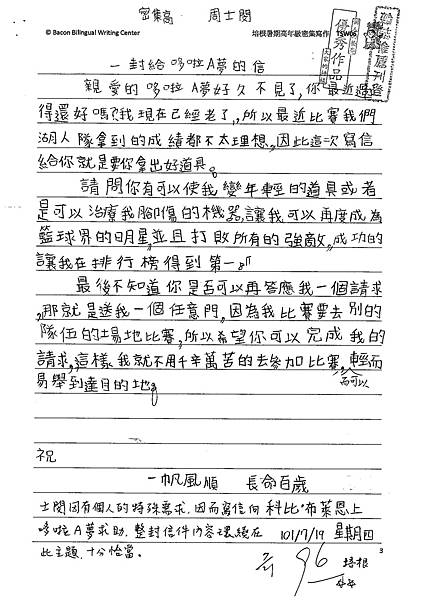 密集高 周士閎
© Bacon Bilingual Writing Center 培根暑期高年級密集寫作 TSW06
優秀作品
一封給哆啦A夢的信
親愛的哆啦A夢好久不見了,你最近過
得還好嗎?我現在已經老了,所以最近比賽我們
湖人隊拿到的成績都不太理想,因此這次寫信
給你就是要你拿出好道具。
請問你有可以使我變年輕的道具或者
是可以治療我腳傷的機器,讓我可以再度成為
籃球界的明星,並且打敗所有的強敵,成功的
讓我在排行榜得到第一。
最後不知道你是否可以再答應我一個請求
,那就是送我一個任意門,因為我比賽要去別的
隊伍的場地比賽,所以希望你可以完成我的
請求,這樣我就不用千辛萬苦的去參加比賽,輕而
易舉到達目的地。
而可以
祝
一帆風順 長命百歲
士閎因有個人的特殊需求,因而寫信向 科比·布萊恩上
哆啦A夢求助,整封信件內容環繞在 101/7/19 星期四
此主題,十分恰當。
96 培根
3